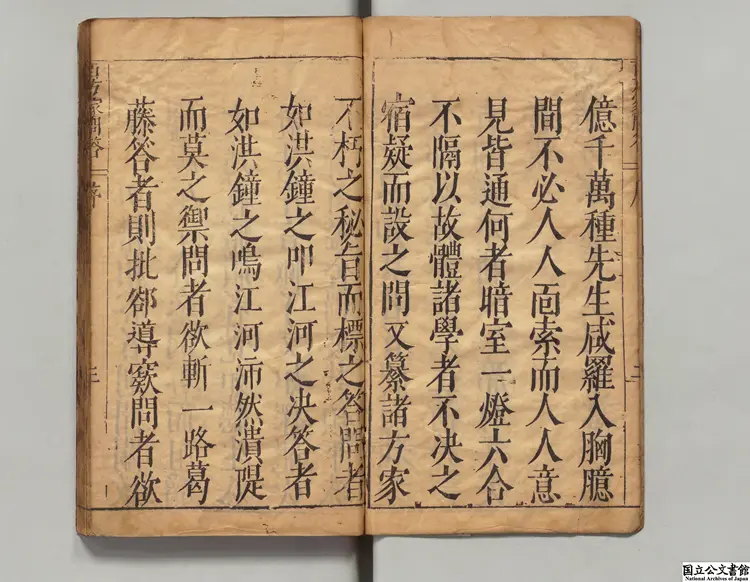 億千萬種先生咸羅入胸臆
間不必人人靣索而人人意
見皆通何者暗室一燈六合
不隔以故體諸學者不决之
宿疑而設之問又纂諸方家
不朽之秘旨而標之答問者
如洪鐘之叩江河之决答者
如洪鐘之鳴江河沛然潰隄
而莫之禦問者欲斬一路葛
藤答者則批郤導窾問者欲
家問答
序
三
国立公文書館
National Archives of Japan